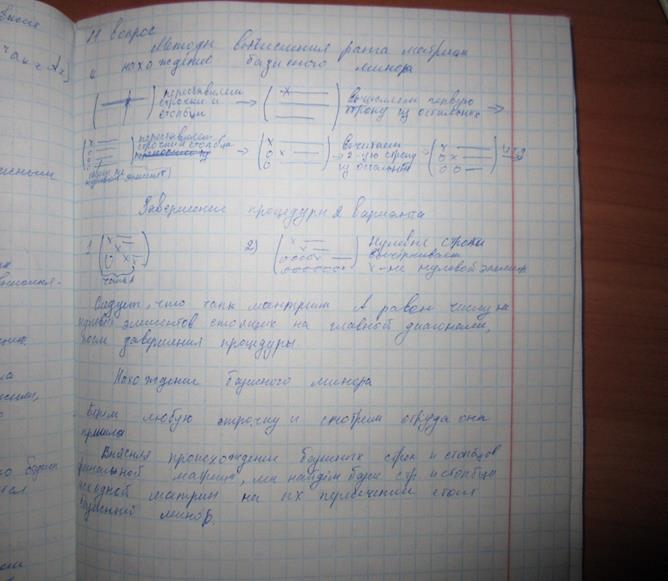 11 вопрос
Методы вычисления ранга матрицы
и нахождение базисного минора
переставляем строчки и столбцы
вычитаем первую строку из остальных
переставляем строчки и столбцы
вычитаем 2-ую строку из остальных
и т.д
Завершение процедуры 2 варианта
1
2) Нулевые строки
вычеркиваем
x - не нулевой элемент
Следует, что ранг матрицы А равен числу не
нулевых элементов стоящих на главной диагонали,
после завершения процедуры.
Нахождение базисного минора
Берем любую строчку и смотрим откуда она
пришла
Выясняя происхождение базисных строк и столбцов
финальной матрицы, мы найдём базис стр и столбцы
исходной матриц на их пересечении стоит
базисный минор.